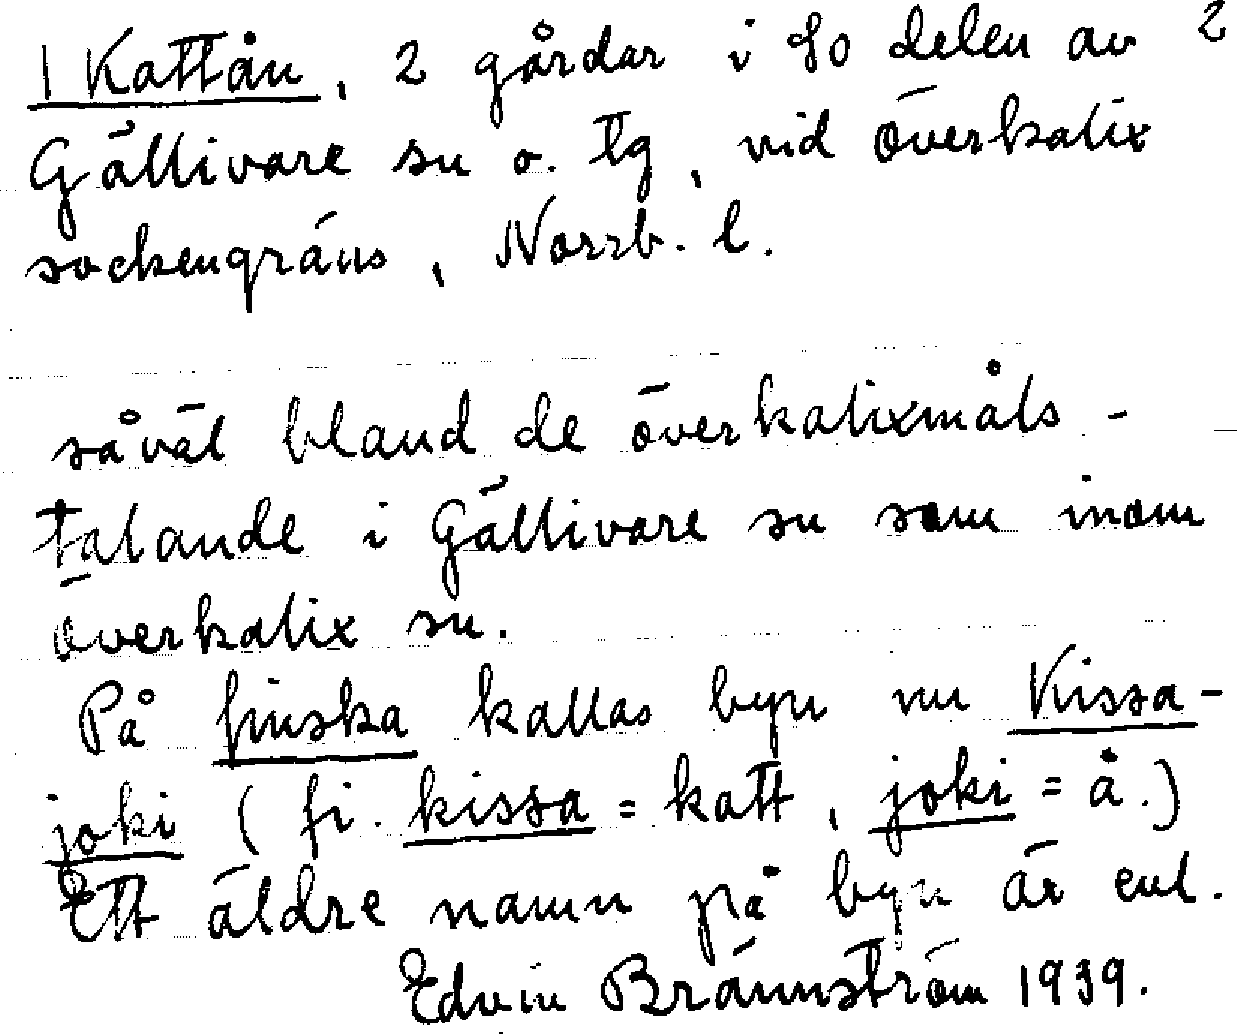 1 Kattån, 2 gårdar i So delen av 2
Gällivare sn o. tg, vid Överkalix
sockengräns, Norrb. l.
såväl bland de överkalixmåls-
talande i Gällivare sn som inom
Överkalix sn.
På finska kallas byn nu Kissa-
joki (fi. kissa = katt, joki = å.)
Ett äldre namn på byn är enl.
Edvin Brännström 1939.